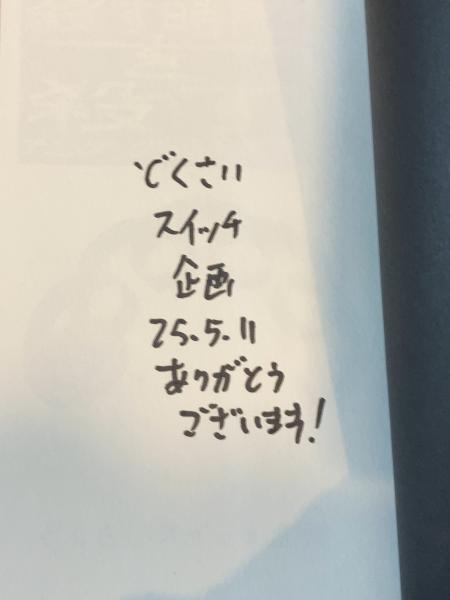 どくさい
スイッチ
企画
25.5.11
ありがとう
ございます!